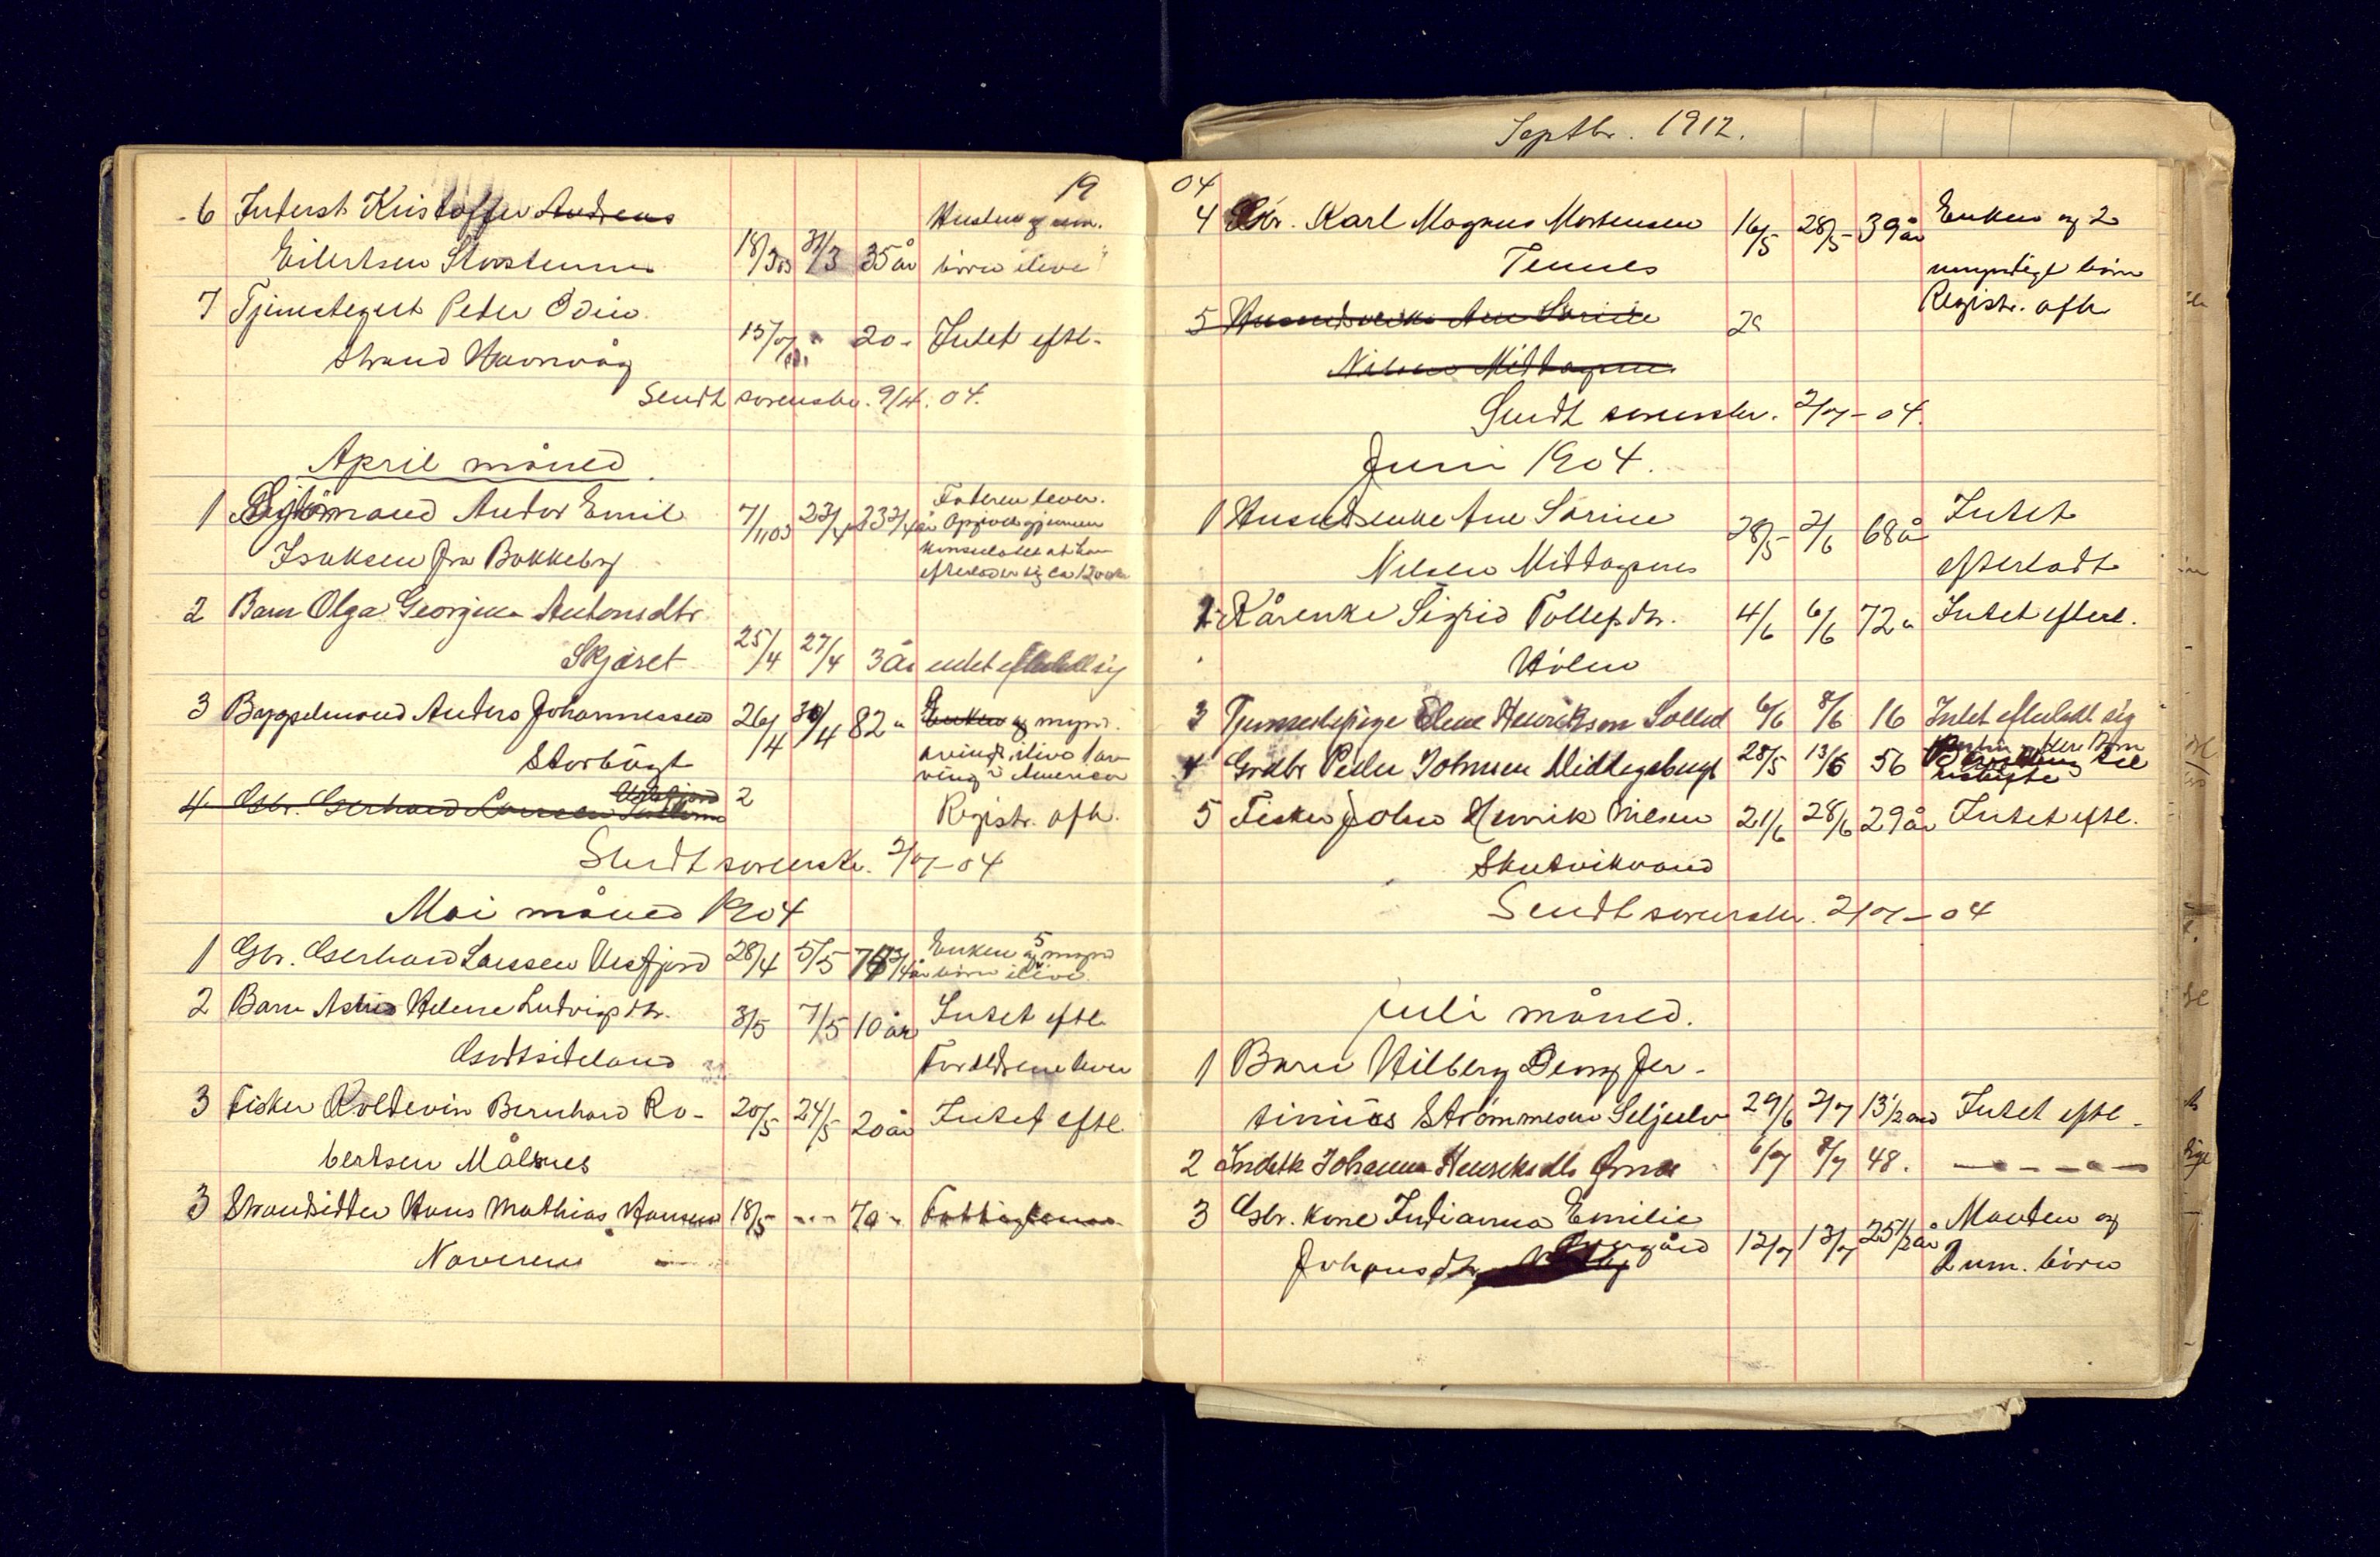 19
6 Inderst Kristoffer Andreas
Hustru og um.
Eilertsen Storstennes 18/3 03 31/3 35 år børn ilive
7 Tjenestegut Peder Odin
Strand Havnvåg 15/7 20 " Intet eftl.
Sendt sorenskr. 9/4. 04.
April måned
1 Sjømand Andor Emil 7/11 03 23/4 23 3/4 år Faderen lever.
Opgivet gjennem
Isaksen fra Bakkeby konsulatet at han
efterlader sig ca 120 kr
2 Barn Olga Georgine Antonsdtr
Skjæret 25/4 27/4 3 år intet efterladt sig
3 Bygselmand Anders Johannessen 26/4 30/4 82 " Enken og mynd.
Storbugt arving ilive 1 ar-
ving i Amerika
4 Gbr. Gerhard Larsen Vesfjord 2 Registr. afh.
Sendt sorenskr. 2/7-04
Mai måned 1904
1 Gbr. Gerhard Larssen Vesfjord 28/4 5/5 3/4 år Enken og 5 mynd
børn ilive
2 Barn Astrid Helene Ludvigsdtr. 3/5 7/5 10 år Intet eftl.
Forældrene lever
3 Fisker Koldevin Bernhard Ro- 20/5 24/5 20 år Intet eftl.
bertsen Målsnes
3 Strandsidder Hans Mathias Hansen 18/5 --- 70 " Fattiglem
Naveren
Septbr. 1912.
04
4 Gbr. Karl Magnus Mortensen 16/5 28/5 39 år Enken og 2
Tennes umyndige børn
Registr. afh.
5 Husmdsenke Ane Sorine 28
Nilsen Mittagsnes
Sendt sorenskr. 2/7-04.
Juni 1904.
1 Husmdsenke Ane Sorine 28/5 2/6 68 år Intet
Nilsen Mittagsnes efterladt
2 Kårenke Sigrid Tollefsdtr. 4/6 6/6 72 " Intet efterl.
Holm
3 Tjenestepige Elene Henrikson Solli 6/6 8/6 16 Intet efterladt sig
4 Grdbr Peder Johnsen Middagsbugt 28/5 13/6 56
5 Fisker John Henrik Nilsen 21/6 28/6 29 år Intet eftl.
Skutvikvand
Sendt sorenskr. 2/7-04
juli måned.
1 Barn Hilberg Georg Jer-
tinius Strømmesen Seljeelv 29/6 2/7 13 1/2 md Intet eftl.
2 Indstk Johanna Henriksdtr 6/7 8/7 48. — " — " —
3 Gbr. kone Indianna Emilie Manden og
Johansdtr. 12/7 13/7 25 1/2 år 2 um. børn